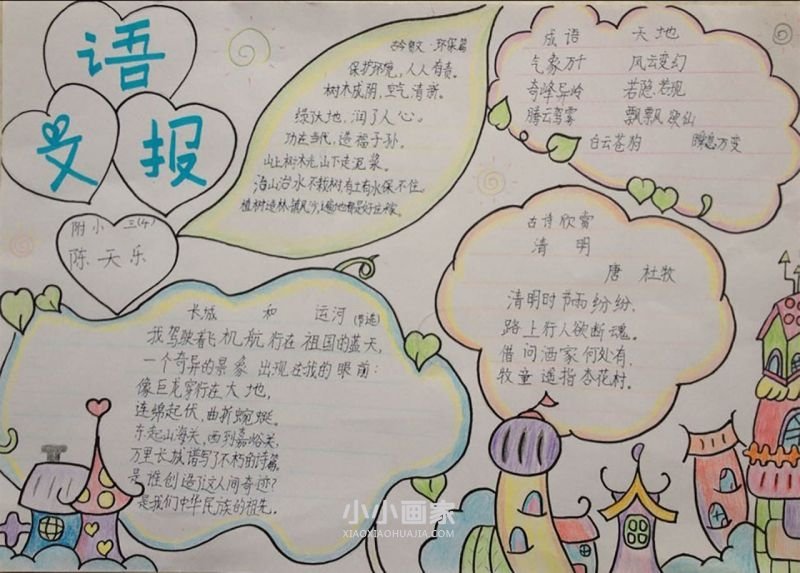 语
文 报
附小 三(4)
陈天乐
保护环境,人人有责。
树木成阴,空气清新。
绿休地,润了人心。
功在当代,造福子孙。
山上树木光,山下走泥浆。
治山治水不栽树,有土有水保不住。
成语 天地
气象万千 风云变幻
奇峰异岭 若隐若现
腾云驾雾 飘飘欲仙
白云苍狗 瞬息万变
古诗欣赏
清 明
唐 杜牧
清明时节雨纷纷,
路上行人欲断魂。
借问酒家何处有,
牧童遥指杏花村。
长城 和 运河(节选)
我驾驶着飞机航行在祖国的蓝天,
一个奇异的景象出现在我的眼前:
像巨龙穿行在大地,
连绵起伏,曲折蜿蜒。
东起山海关,西到嘉峪关,
万里长城谱写了不朽的诗篇。
是谁创造了这人间奇迹?
是我们中华民族的祖先。
小小画家
XIAOXIAOHUAJIA.COM